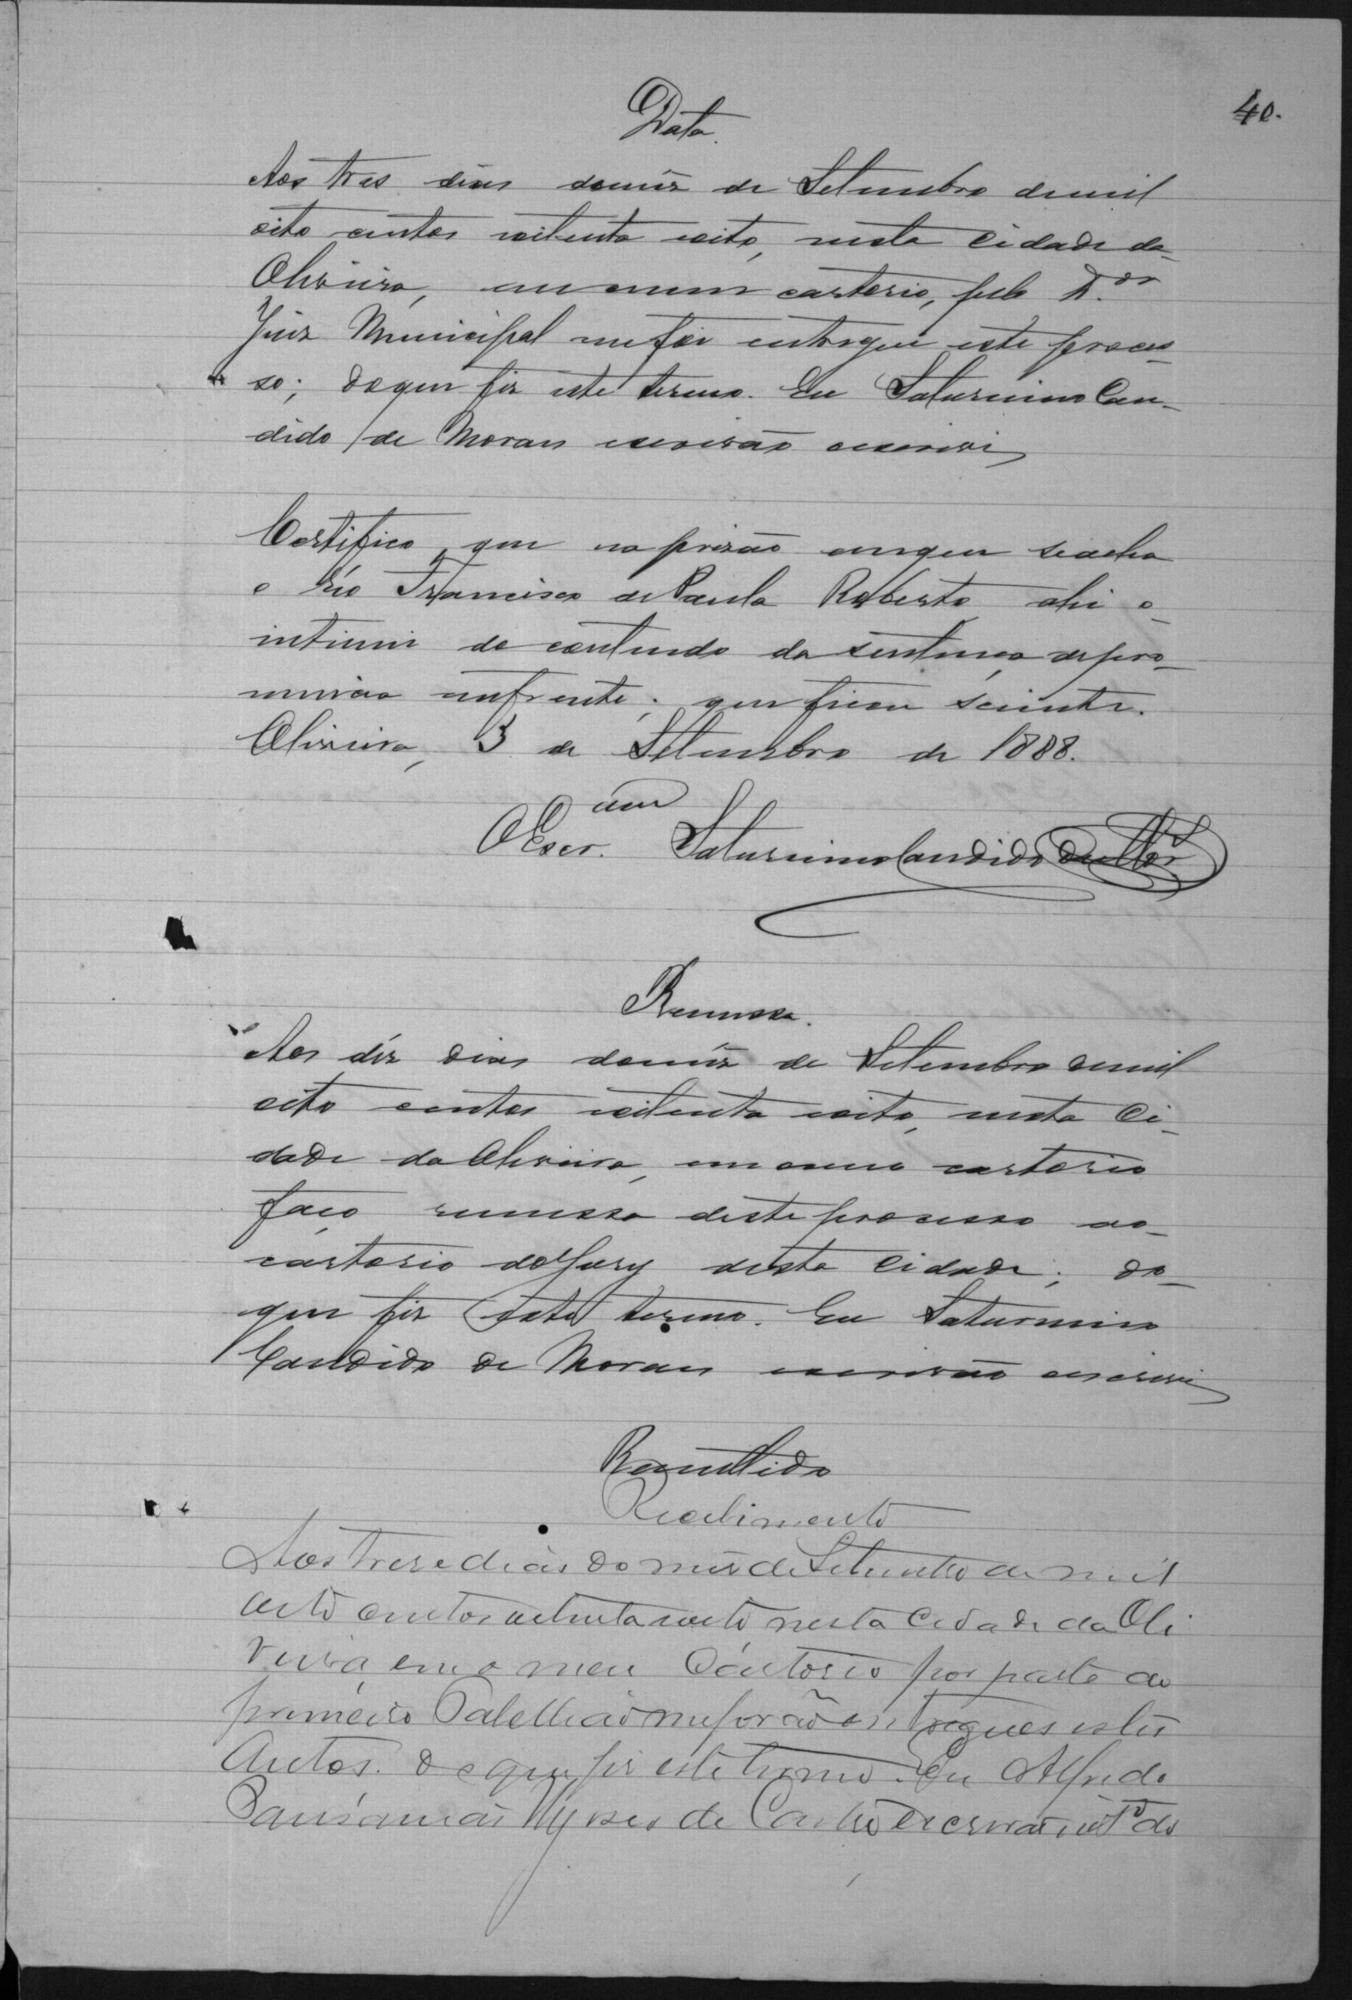 40.
Data.
Aos tres dias do mez de Setembro de mil
oito centos e oitenta e oito, nesta Cidade da
Oliveira, em o meu cartorio, pelo D.or
Juiz Municipal me foi entregue este proces-
so; do que fiz este termo. Eu Saturnino Can-
dido de Moraes escrivão escrevi
Certifico que na prisão em que se acha
o réo Francisco de Paula Roberto ahi o
intimei do conteudo da sentença de pro-
nuncia em frente; que ficou sciente.
Oliveira, 3 de Setembro de 1888.
O Escr.am Saturnino Candido de Mor
Remessa.
Aos déz dias do mez de Setembro de mil
oito centos e oitenta e oito, nesta Ci-
dade da Oliveira, em o meu cartorio
faço remessa deste processo ao
cartorio do Jury desta Cidade; do
que fiz este termo. Eu Saturnino
Candido de Moraes escrivão escrevi
Remettido
Recebimento
Aos treze dias do mez de Setembro de mil
oito centos oitenta e oito nesta Cidade da Oli
veira em o meu Cartorio por parte do
primeiro Tabellião me forão entregues estes
Autos. do que fiz este termo. Eu Alfredo
de Castro Escrivão int.o do